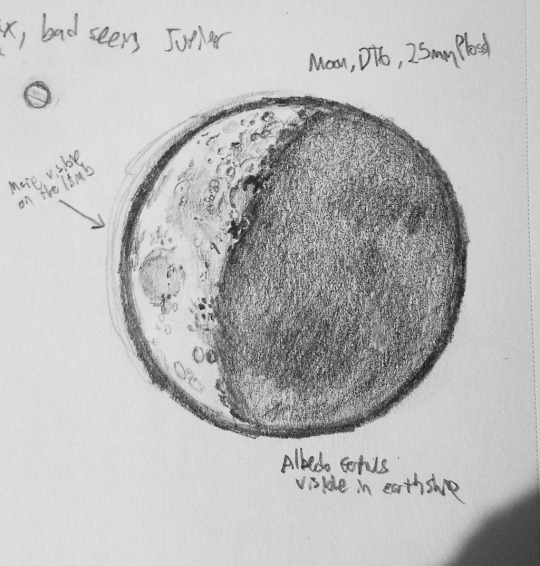 x, bad seeing Jupiter
Moon, DT6, 25mm Plossl
More visible
on the limb
Albedo
visible in earthshine